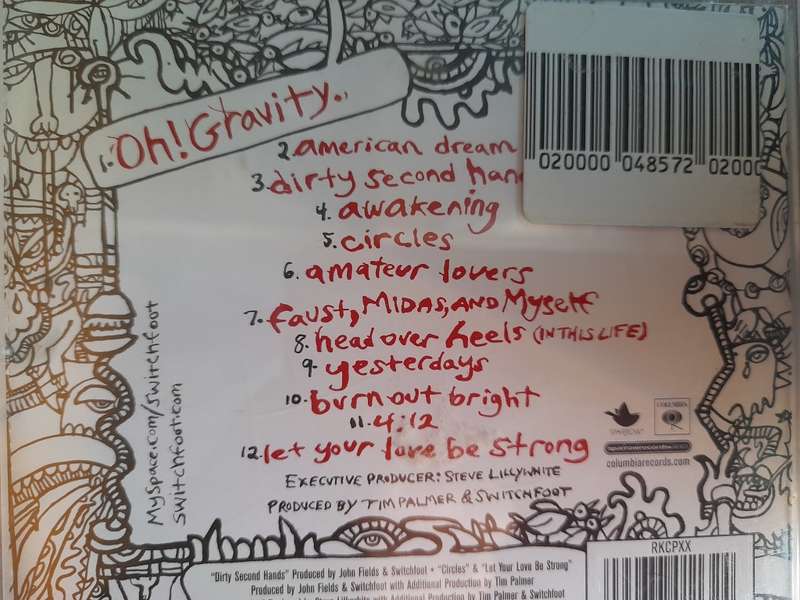 1. Oh! Gravity.
2. american dream
3. dirty second han
4. awakening
5. circles
6. amateur lovers
7. faust, MIDAS, AND Myself
8. head over heels (IN THIS LIFE)
9. yesterdays
10. burn out bright
11. 4:12
12. let your love be strong
EXECUTIVE PRODUCER: STEVE LILLYWHITE
PRODUCED BY TIM PALMER & SWITCHFOOT
MySpace.com/switchfoot
switchfoot.com
020000 048572 0200
SPARROW
COLUMBIA
columbiarecords.com
RKCPXX
"Dirty Second Hands" Produced by John Fields & Switchfoot • "Circles" & "Let Your Love Be Strong"
Produced by John Fields & Switchfoot with Additional Production by Tim Palmer
Steve Lillywhite & Switchfoot with Additional Production by Tim Palmer & Switchfoot